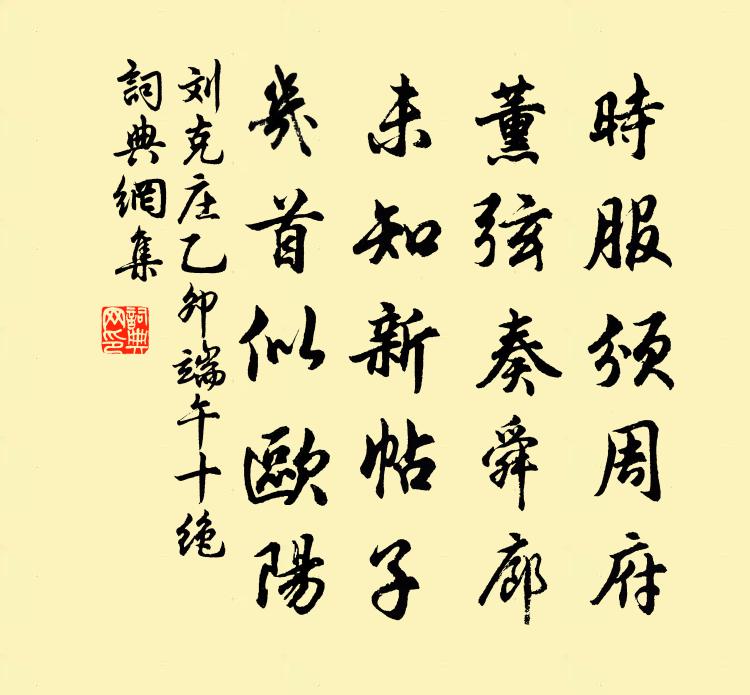 時服頒周府
薰弦奏舜廊
未知新帖子
幾首似歐陽
刘克庄乙卯端午十绝
詞典網集
詞典网印